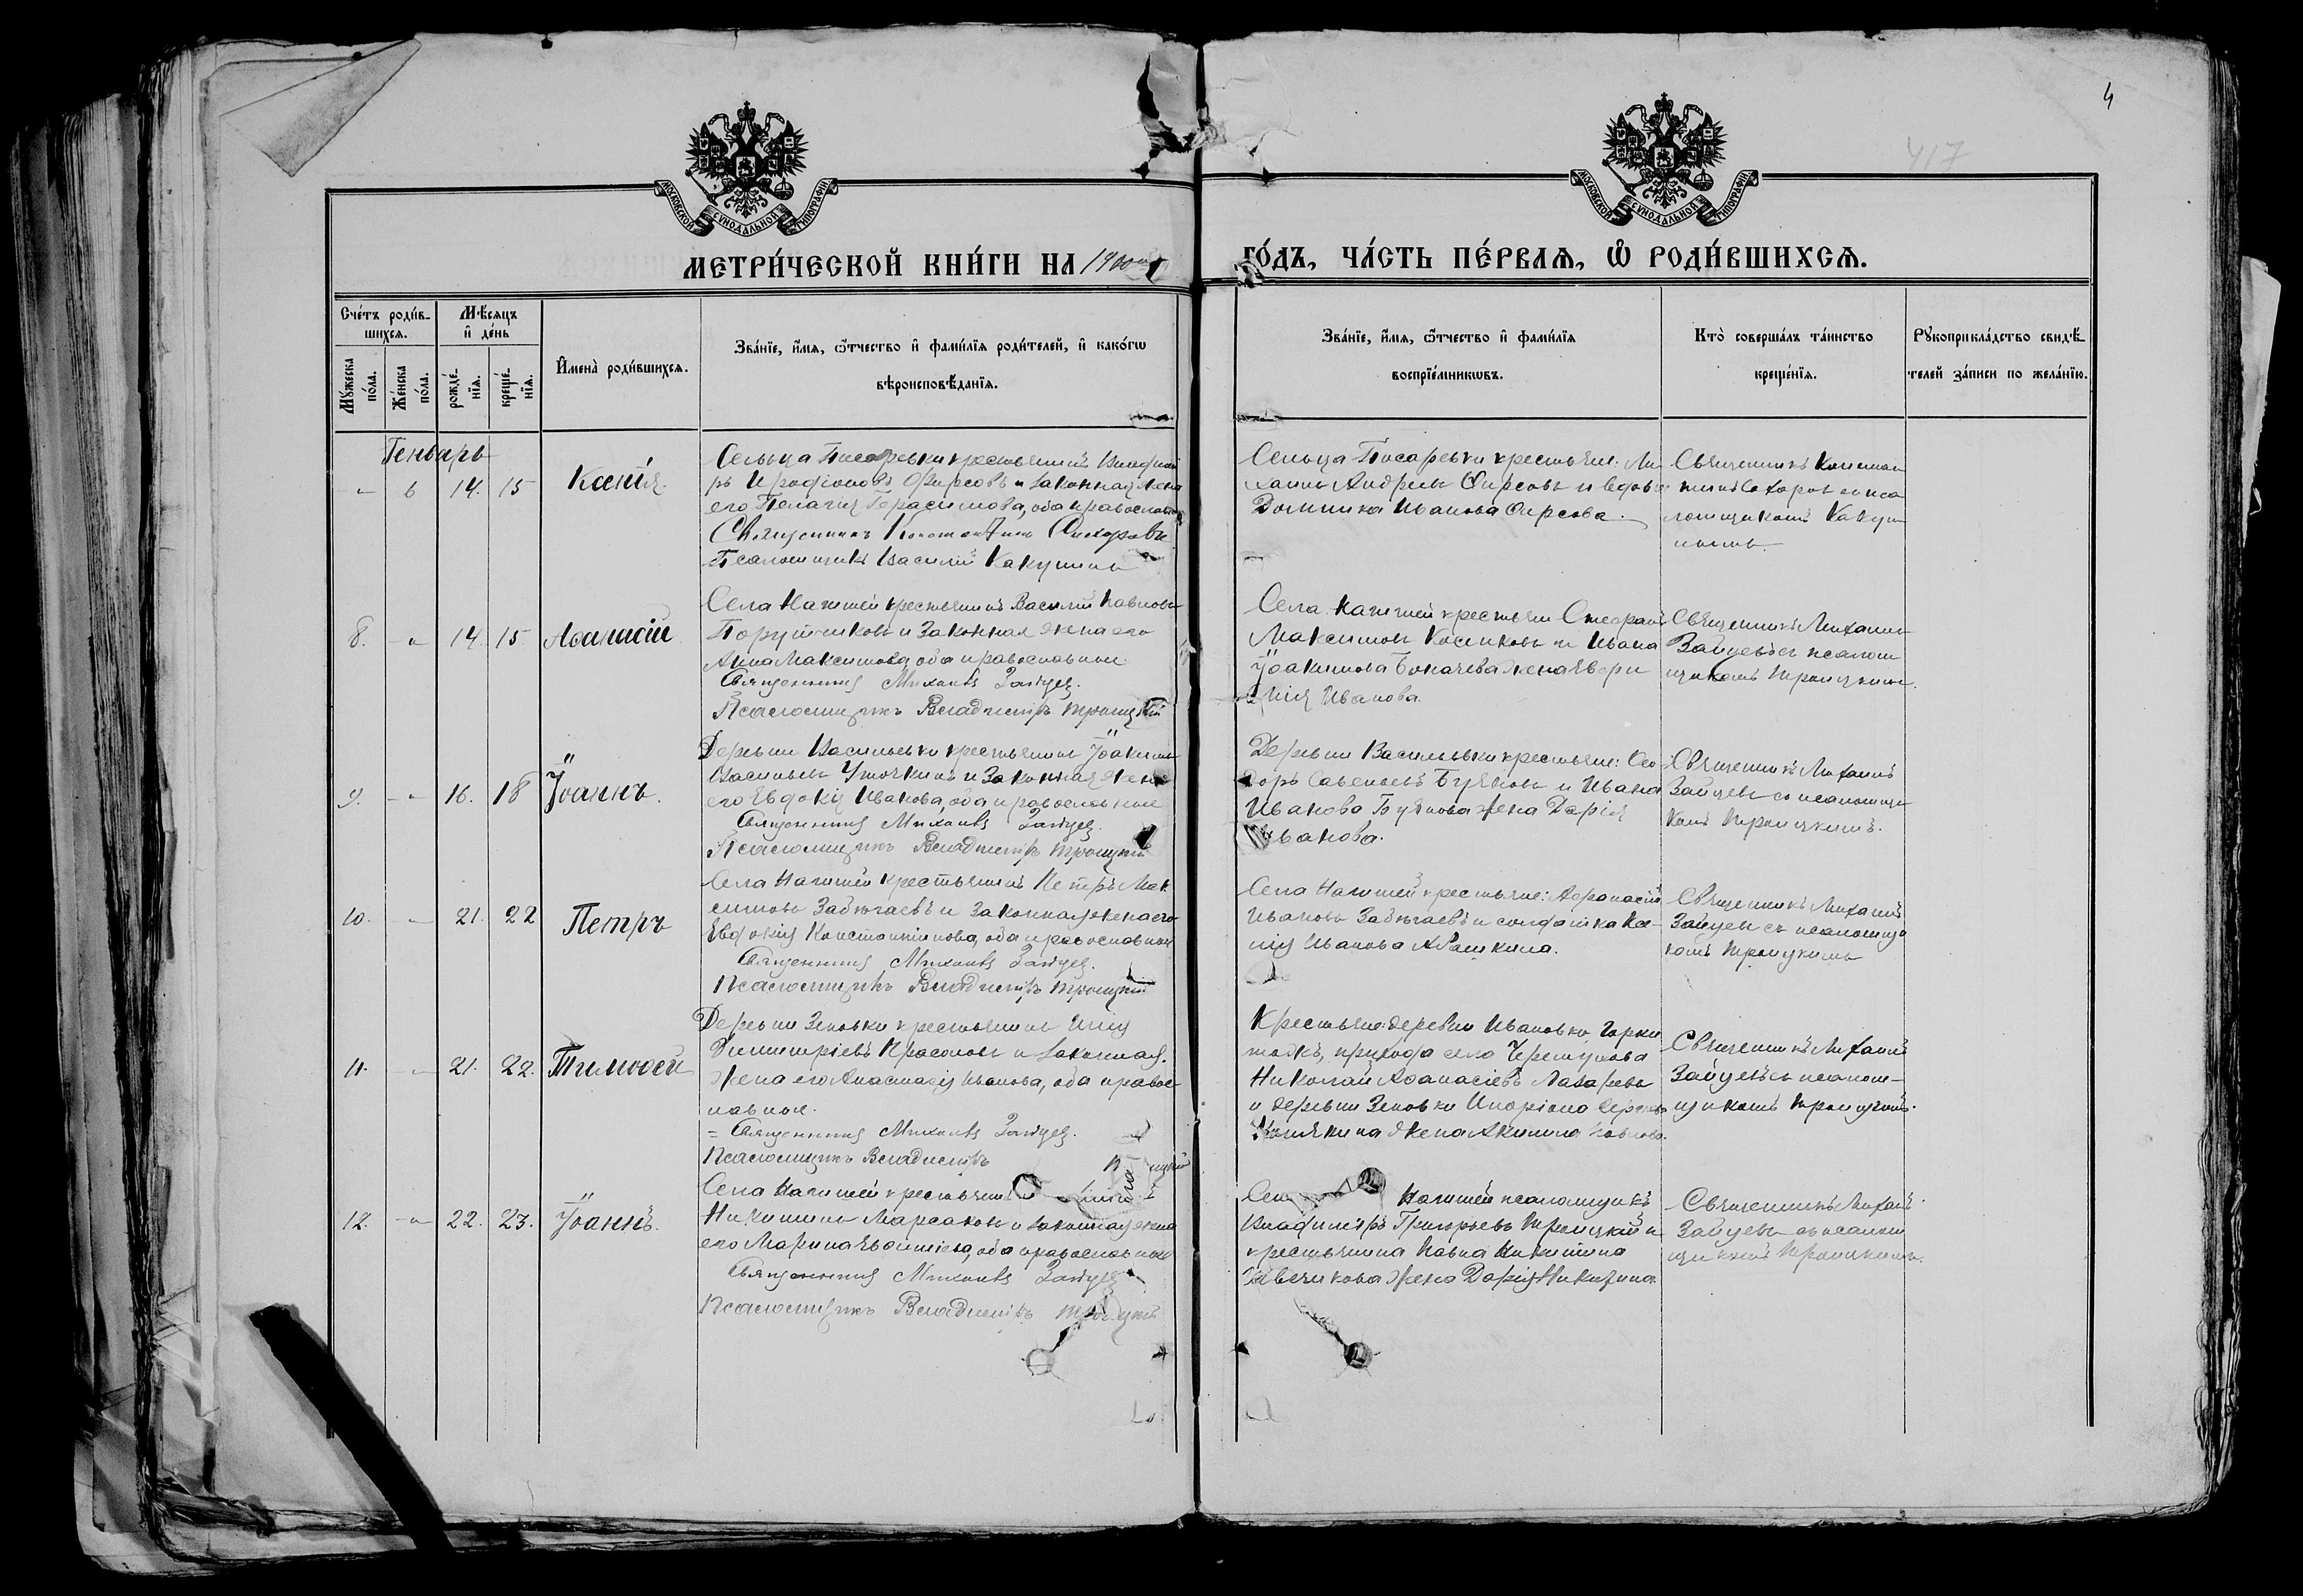 4
417
МОСКОВСКОЙ СѴНОДАЛЬНОЙ ТИПОГРАФІИ
МОСКОВСКОЙ СѴНОДАЛЬНОЙ ТИПОГРАФІИ
МЕТРИ́ЧЕСКОЙ КНИ́ГИ НА 1900
ГО́ДЪ, ЧА́СТЬ ПЕ́РВАѦ, Ѽ РОДИ́ВШИХСѦ.
Сче́тъ роди́в-
шихсѧ.
Мꙋ́жеска
по́ла.
Же́нска
по́ла.
Мѣ́сѧцъ
и҆ де́нь
рожде́-
нїѧ.
креще́-
нїѧ.
И҆мена̀ роди́вшихсѧ.
Зва́нїе, и҆́мѧ, ѻ҆́тчество и҆ фами́лїѧ роди́телей, и҆ како́гѡ
вѣроисповѣ́данїѧ.
Зва́нїе, и҆́мѧ, ѻ҆́тчество и҆ фами́лїѧ
воспрїе́мникѡвъ.
Кто̀ соверша́лъ та́инство
креще́нїѧ.
Рꙋкоприкла́дство свидѣ́-
телей за́писи по жела́нїю.
Генварь
" 6 14. 15 Ксенія.
Сельца Писаревки крестьянинъ Владимі
ръ Иродіоновъ Фирсовъ и законная жена
его Пелагія Герасимова, оба православные
Священникъ Константинъ
Псаломщикъ Василій Какушинъ
Сельца Писаревки крестьяне: Ми
хаилъ Андреевъ Фирсовъ и вдова
Домника Иванова Фирсова.
Священникъ Констан
тинъ съ пса
ломщикомъ Какуш
нымъ.
8. " 14. 15. Аѳанасій
Села Нагишей крестьянинъ Василій Павловъ
Поручиковъ и законная жена его
Анна Максимова, оба православные
Священникъ Михаилъ Зайцевъ.
Псаломщикъ Владиміръ Троицкій
Села Нагишей крестьяне: Стефанъ
Максимовъ Косиковъ и Ивана
Іоакимова жена Евфро
Иванова.
Священникъ Михаилъ
Зайцевъ съ псалом
щикомъ Троицкимъ.
9. " 16. 18 Іоаннъ.
Деревни Васильевки крестьянинъ Іоакимъ
Васильевъ Уточкинъ и законная жена
его Евдокія Иванова, оба православные
Священникъ Михаилъ Зайцевъ.
Псаломщикъ Владиміръ Троицкій
Деревни Васильевки крестьяне: Ѳео
доръ Савельевъ Буяновъ и Ивана
Иванова Буянова жена Дарія
Иванова.
Священникъ Михаилъ
Зайцевъ съ псаломщи
комъ Троицкимъ.
10. " 21. 22 Петръ
Села Нагишей крестьянинъ Петръ Мак
симовъ Забѣгаевъ и законная жена его
Евдокія Константинова, оба православные
Священникъ Михаилъ Зайцевъ.
Псаломщикъ Владиміръ Троицкій
Села Нагишей крестьяне: Аѳанасій
Ивановъ Забѣгаевъ и солдатка Ксе-
нія Иванова Абрашкина.
Священникъ Михаилъ
Зайцевъ съ псаломщи
комъ Троицкимъ
11. " 21. 22. Тимоѳей
Деревни Зеновки крестьянинъ Илія
Димитріевъ и законная
жена его Анастасія Иванова, оба правос
лавные.
Священникъ Михаилъ Зайцевъ.
Псаломщикъ Владиміръ
Крестьяне: деревни Ивановки,
прихода села
Николай Аѳанасіевъ Лазаревъ
и деревни Зеновки
жена Акилина Павлова.
Священникъ Михаилъ
Зайцевъ съ псалом-
щикомъ Троицкимъ.
12. " 22. 23. Іоаннъ.
Села Нагишей крестьянинъ
Никитинъ Марсаковъ и законная жена
его Марина Евѳиміева, оба православные
Священникъ Михаилъ Зайцевъ
Псаломщикъ Владиміръ Троицкій
Села Нагишей псаломщикъ
Владиміръ Григорьевъ Троицкій и
крестьянина Павла Никитина
жена Дарія Никитина
Священникъ Михаилъ
Зайцевъ съ псалом
щикомъ Троицкимъ.